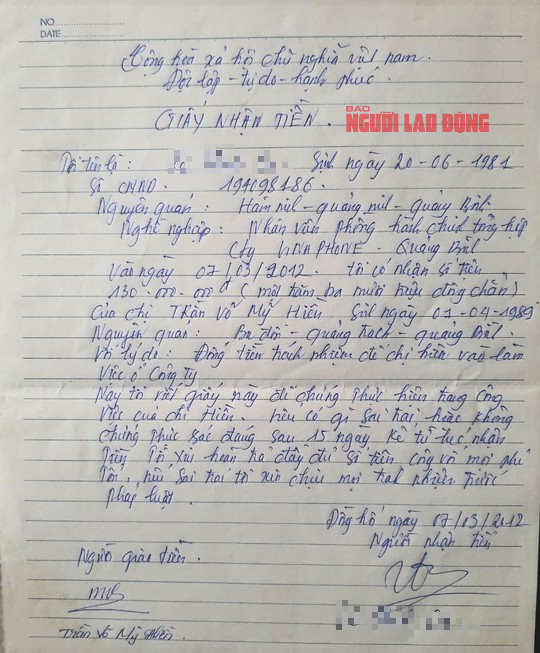 NO.
DATE
Cộng hoà xã hội chủ nghĩa việt nam.
Độc lập - tự do - hạnh phúc.
GIẤY NHẬN TIỀN.
BÁO
NGƯỜI LAO ĐỘNG
Tôi tên là : Sinh ngày 20-06-1981
Số CMND. 194098186.
Nguyên quán : Hàm ninh - quảng ninh - quảng Bình
Nghề nghiệp : Nhân văn phòng hành chính tổng hợp
Cty VINAPHONE - Quảng Bình
Vào ngày 07/03/2012. tôi có nhận số tiền
130.000.000đ (một trăm ba mươi triệu đồng chẵn)
Của chị TRẦN VÕ MỸ HIỀN Sinh ngày 01-04-1989
Nguyên quán : Ba đồn - quảng trạch - quảng Bình.
Với lý do : Đóng tiền trách nhiệm để chị hiền vào làm
Việc ở Công ty
Nay tôi viết giấy này để chứng thực hiện trạng công
Việc của chị Hiền. nếu có gì sai trái hoặc không
chứng thực xác đáng sau 15 ngày kể từ lúc nhận
tiền, Tôi xin hoàn trả đầy đủ số tiền cộng với mọi phí
Tổn, nếu sai trái tôi xin chịu mọi trách nhiệm trước
pháp luật.
Đồng hới ngày 07/03/2012
Người giao tiền. Người nhận tiền
Trần Võ Mỹ Hiền